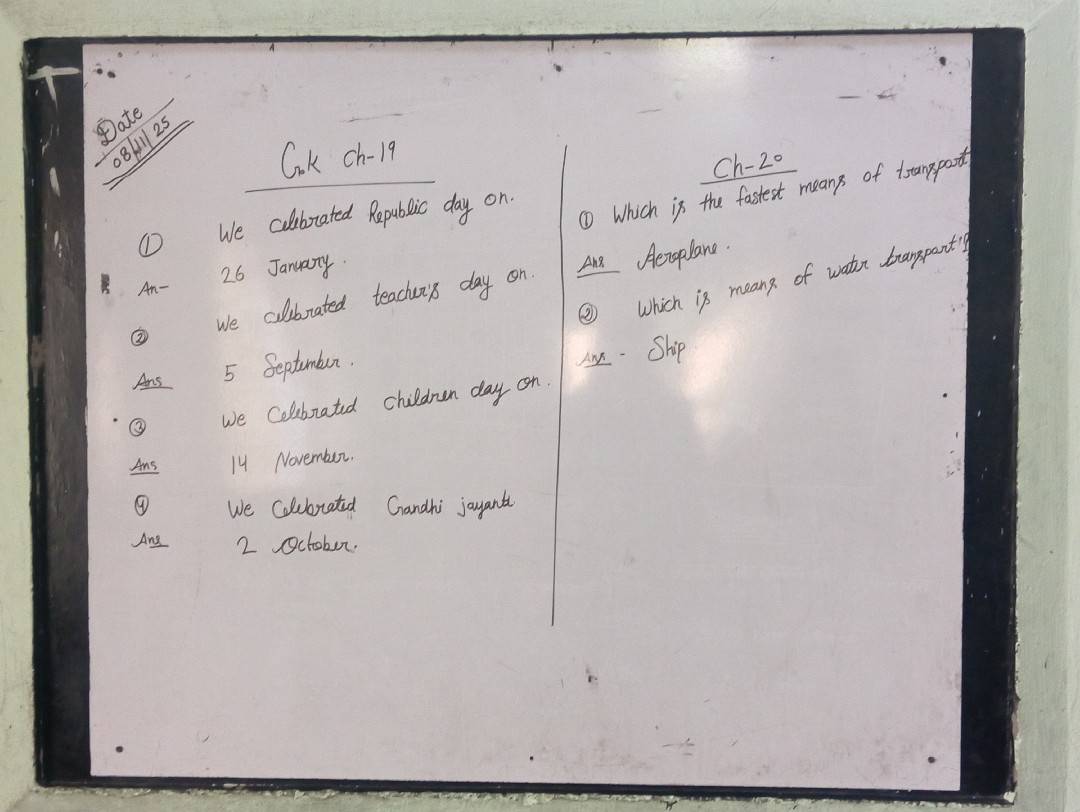 Date
08/11/25
G.K Ch-19
① We celebrated Republic day on.
An- 26 January.
② We celebrated teacher's day on.
Ans 5 September.
③ We Celebrated children day on.
Ans 14 November.
④ We Celebrated Gandhi jayanti
Ans 2 October.
Ch-20
① Which is the fastest means of transport
Ans Aeroplane.
② Which is means of water transport?
Ans - Ship